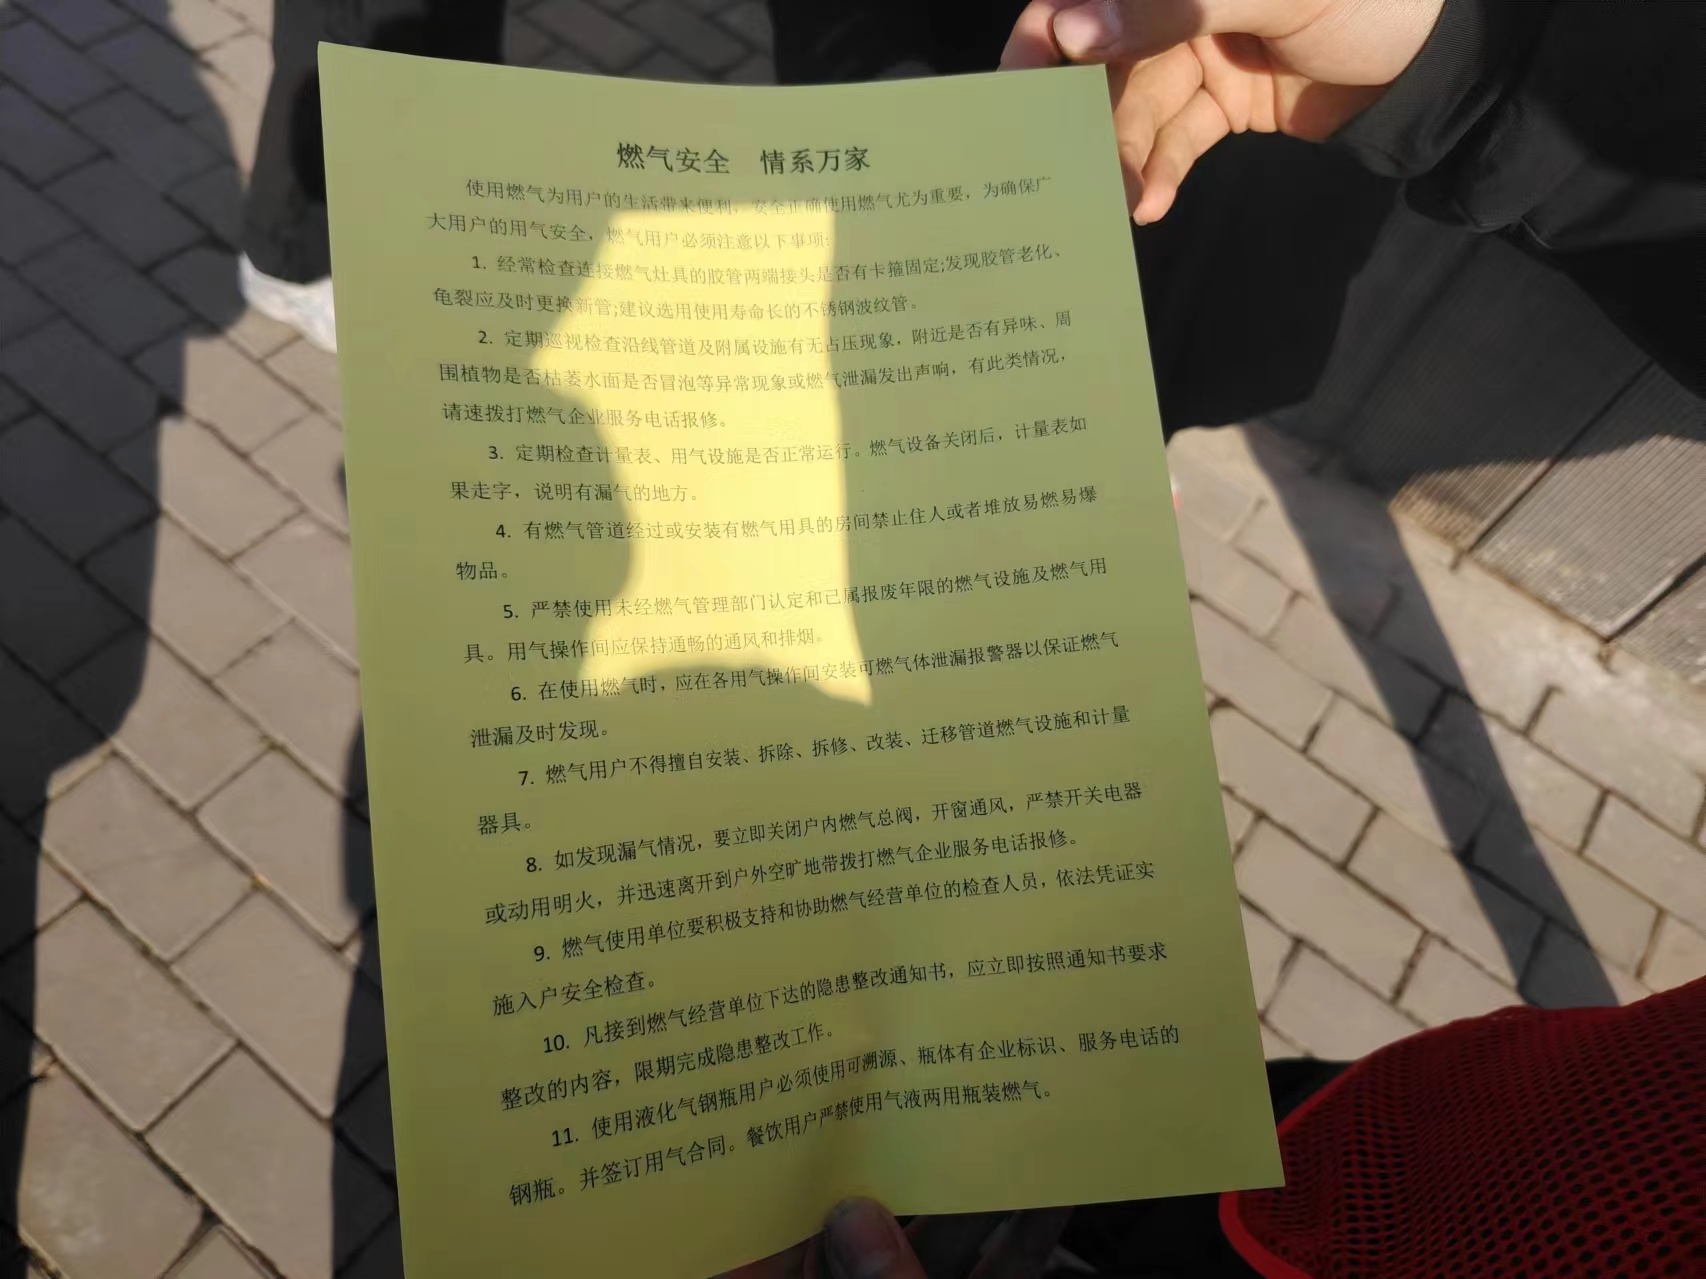 燃气安全 情系万家
使用燃气为用户的生活带来便利，安全正确使用燃气尤为重要，为确保广
大用户的用气安全，燃气用户必须注意以下事项:
1. 经常检查连接燃气灶具的胶管两端接头是否有卡箍固定;发现胶管老化、
龟裂应及时更换新管;建议选用使用寿命长的不锈钢波纹管。
2. 定期巡视检查沿线管道及附属设施有无占压现象，附近是否有异味、周
围植物是否枯萎水面是否冒泡等异常现象或燃气泄漏发出声响，有此类情况，
请速拨打燃气企业服务电话报修。
3. 定期检查计量表、用气设施是否正常运行。燃气设备关闭后，计量表如
果走字，说明有漏气的地方。
4. 有燃气管道经过或安装有燃气用具的房间禁止住人或者堆放易燃易爆
物品。
5. 严禁使用未经燃气管理部门认定和已属报废年限的燃气设施及燃气用
具。用气操作间应保持通畅的通风和排烟。
6. 在使用燃气时，应在各用气操作间安装可燃气体泄漏报警器以保证燃气
泄漏及时发现。
7. 燃气用户不得擅自安装、拆除、拆修、改装、迁移管道燃气设施和计量
器具。
8. 如发现漏气情况，要立即关闭户内燃气总阀，开窗通风，严禁开关电器
或动用明火，并迅速离开到户外空旷地带拨打燃气企业服务电话报修。
9. 燃气使用单位要积极支持和协助燃气经营单位的检查人员，依法凭证实
施入户安全检查。
10. 凡接到燃气经营单位下达的隐患整改通知书，应立即按照通知书要求
整改的内容，限期完成隐患整改工作。
11. 使用液化气钢瓶用户必须使用可溯源、瓶体有企业标识、服务电话的
钢瓶。并签订用气合同。餐饮用户严禁使用气液两用瓶装燃气。